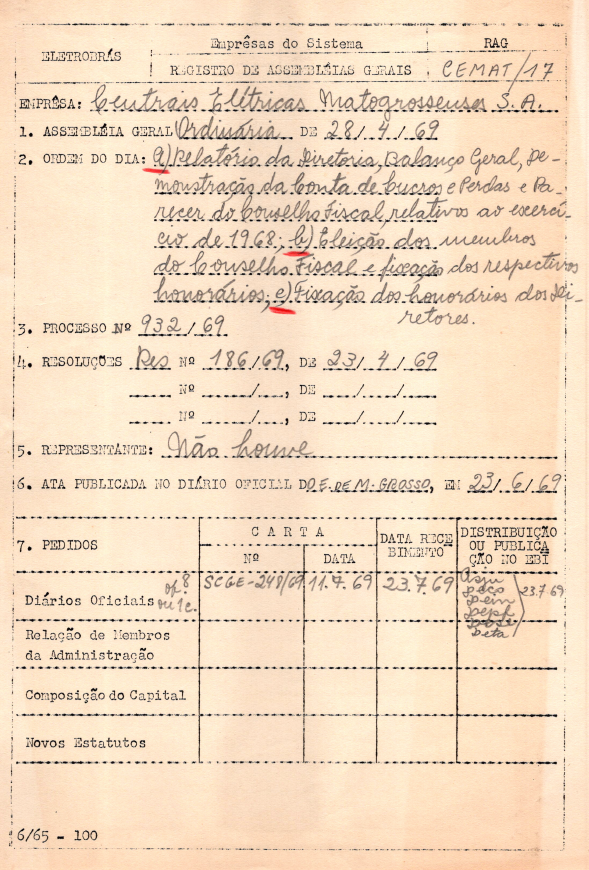 ELETROBRÁS
Emprêsas do Sistema
REGISTRO DE ASSEMBLÉIAS GERAIS
RAG
CEMAT/17
EMPRÊSA: Centrais Elétricas Matogrossenses S.A.
1. ASSEMBLÉIA GERAL Ordinária DE 28/4/69
2. ORDEM DO DIA: a) Relatório da Diretoria, Balanço Geral, De-
monstração da Conta de Lucros e Perdas e Pa-
recer do Conselho Fiscal, relativos ao exercí-
cio de 1968; b) Eleição dos membros
do Conselho Fiscal e fixação dos respectivos
honorários; c) Fixação dos honorários dos Di-
retores.
3. PROCESSO Nº 932/69
4. RESOLUÇÕES Res Nº 186/69, DE 23/4/69
Nº .../..., DE .../.../...
Nº .../..., DE .../.../...
5. REPRESENTANTE: Não houve
6. ATA PUBLICADA NO DIÁRIO OFICIAL DO E. DE M. GROSSO, EM 23/6/69
7. PEDIDOS
CARTA
Nº
DATA
DATA RECE
BIMENTO
DISTRIBUIÇÃO
OU PUBLICA
ÇÃO NO EBI
Diários Oficiais
SCGE-248/69
11.7.69
23.7.69
23.7.69
Relação de Membros
da Administração
Composição do Capital
Novos Estatutos
6/65 - 100